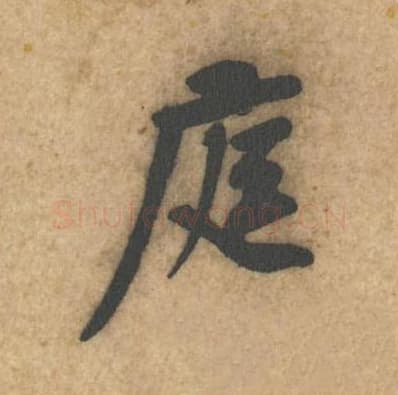 庭
Shufawang.CN